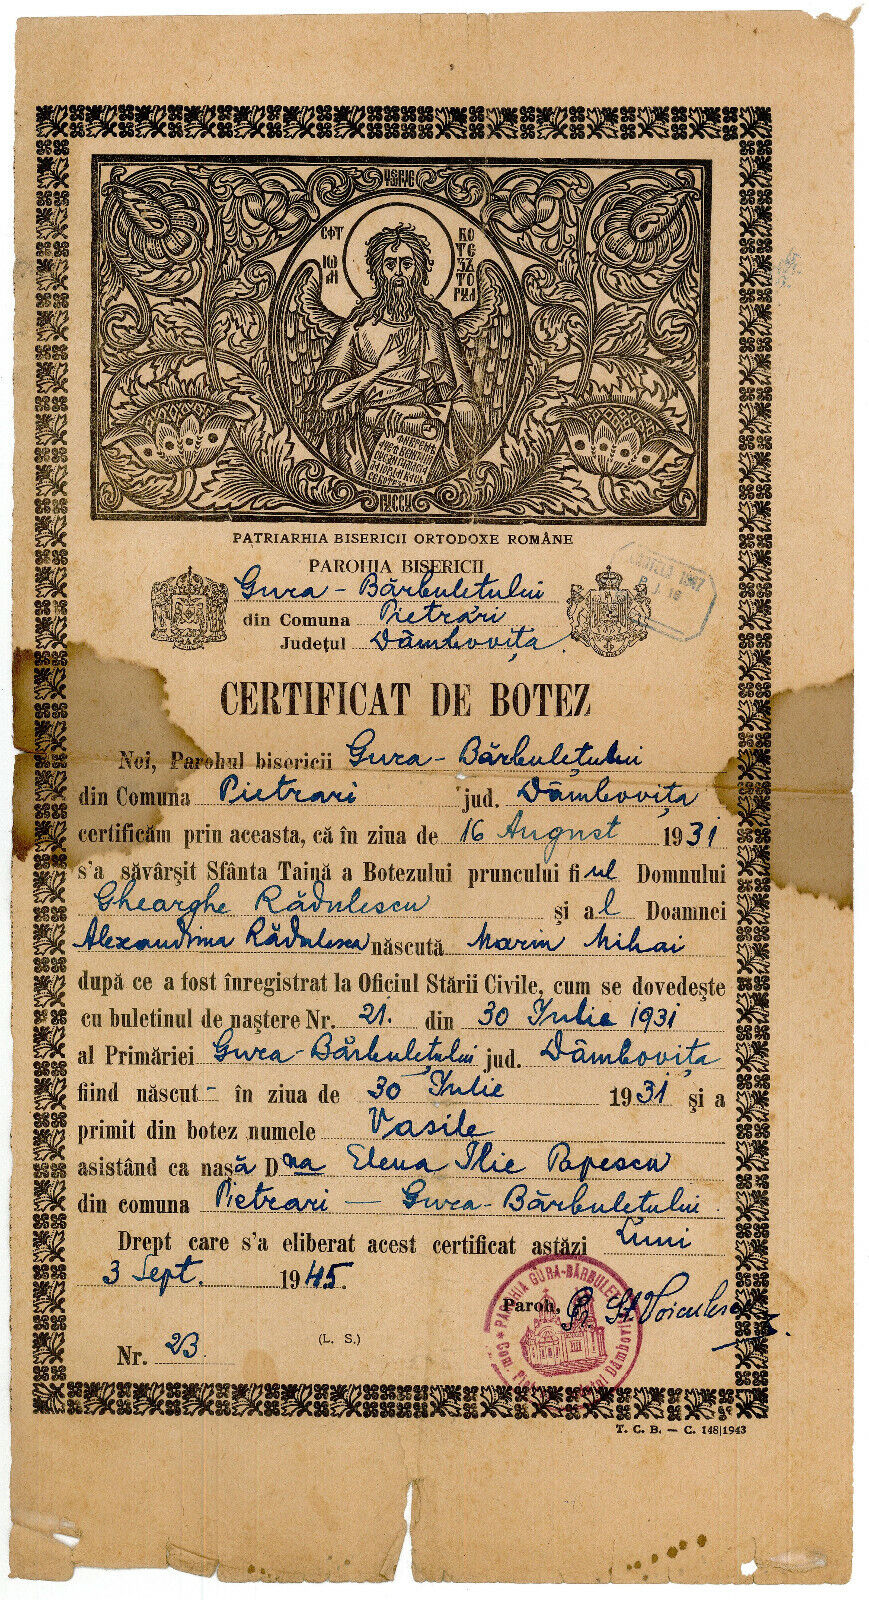 СФТ
ІѠАН
БОТЕЗЪТОРУЛ
PATRIARHIA BISERICII ORTODOXE ROMÂNE
PAROHIA BISERICII
Gura - Bărbulețului
din Comuna Pietrari
Județul Dâmbovița
CERTIFICAT DE BOTEZ
Noi, Parohul bisericii Gura - Bărbulețului
din Comuna Pietrari jud. Dâmbovița
certificăm prin aceasta, că în ziua de 16 August 1931
s'a săvârșit Sfânta Taină a Botezului pruncului fiul Domnului
Gheorghe Rădulescu și al Doamnei
Alexandrina Rădulescu născută Marin Mihai
după ce a fost înregistrat la Oficiul Stării Civile, cum se dovedește
cu buletinul de naștere Nr. 21. din 30 Iulie 1931
al Primăriei Gura-Bărbulețului jud. Dâmbovița
fiind născut - în ziua de 30 Iulie 1931 și a
primit din botez numele Vasile
asistând ca nașă Dna Elena Ilie Popescu
din comuna Pietrari — Gura-Bărbulețului.
Drept care s'a eliberat acest certificat astăzi Luni
3 Sept. 1945.
Paroh, Pr. St. Voiculescu
PAROHIA GURA-BĂRBULEȚ
Com. Județul Dâmbovița
Nr. 23.
(L. S.)
T. C. B. — C. 148|1943